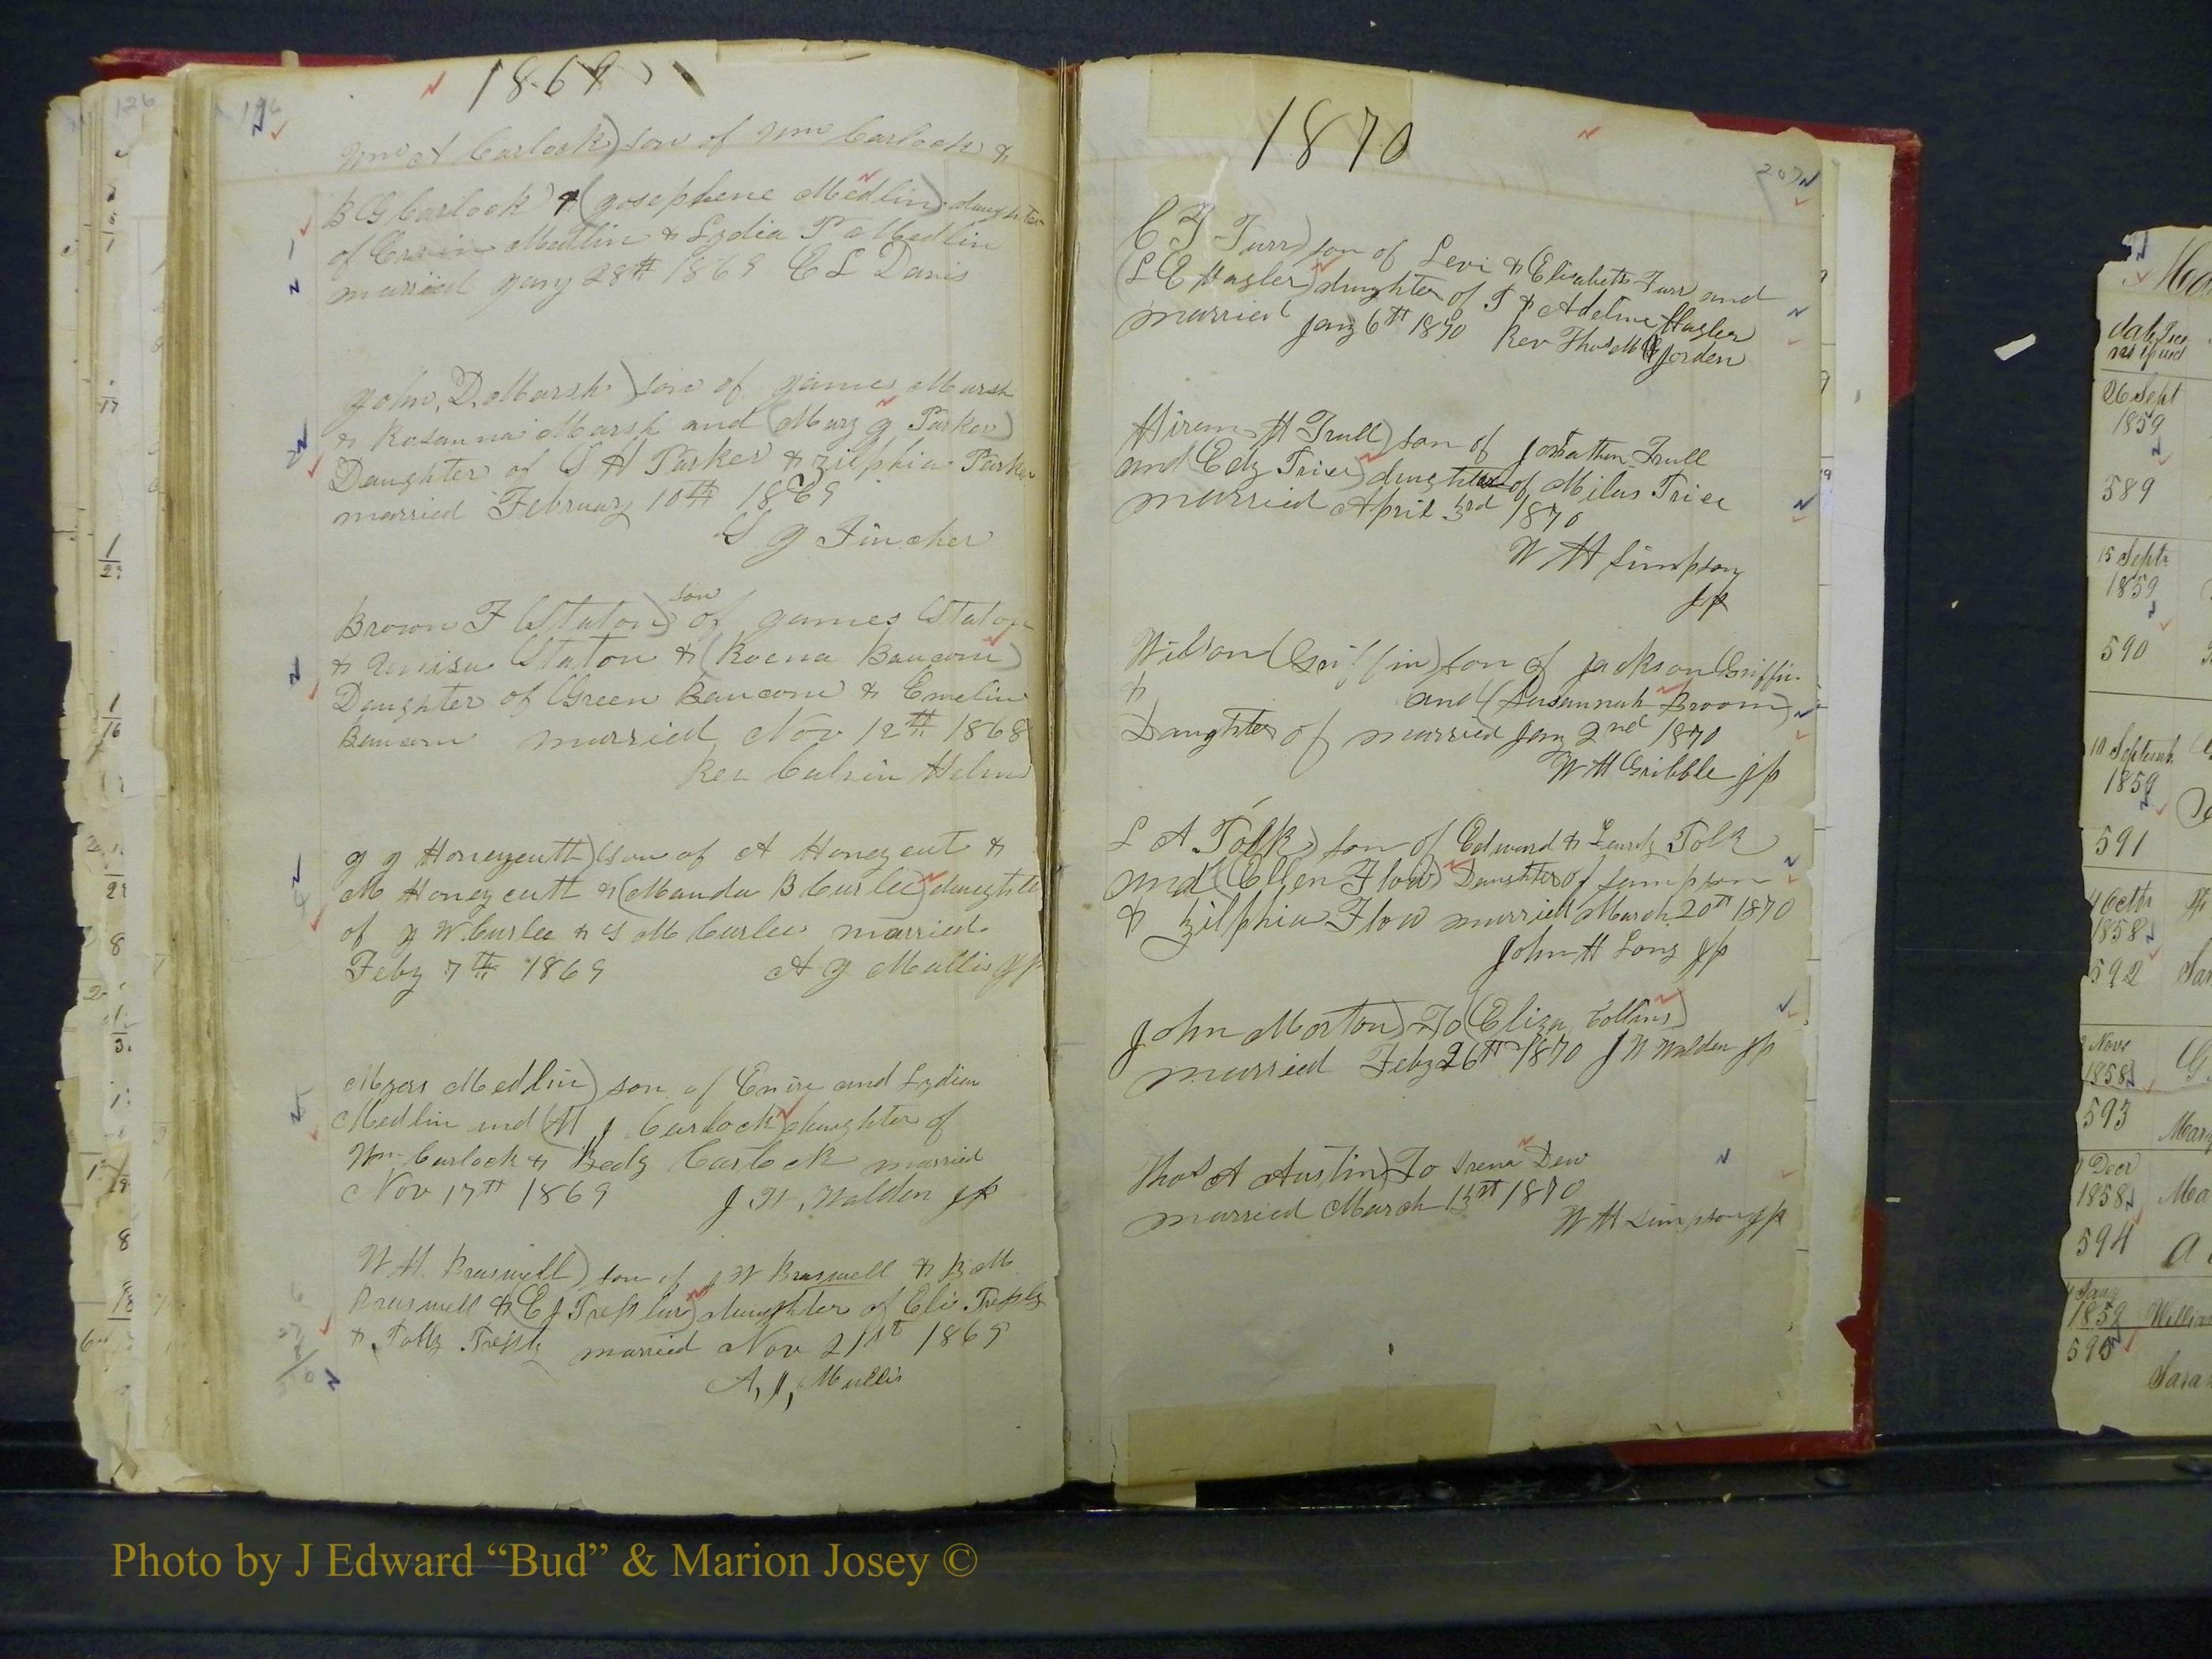 1869
Wm A Carlock) son of Wm Carlock &
B G Carlock & (Josephene Medlin) daughter
of Medlin & Lydia P Medlin
married Jany 28th 1869 E L Davis
John, D. Marsh) son of James Marsh
& Rosanna Marsh and (Mary J Parker)
Daughter of H Parker & Zilphia Parker
married Februay 10th 1869
J Fincher
Brown F Staton) son of James Staton
& Staton & (Roena Baucom)
Daughter of Green Baucom & Emeline
Baucom married Nov 12th 1868
Rev Calvin Helms
J J Honeycutt) son of A Honeycut &
M Honeycutt & (Manda B Curlee) daughter
of J W. Curlee & S M Curlee married
Feby 7th 1869 A J Mullis JP
Myers Medlin) son of and Lydia
Medlin and (M J Carlock) daughter of
Wm Carlock & Bedy Carlock married
Nov 17th 1869 J W. Walden JP
W H. Braswell) son of J W Braswell & B M
Braswell & (E J) daughter of Eli
& Polly married Nov 21st 1869
A, J, Mullis
1870
207
C T Furr) son of Levi & Elizabeth Furr and
(L E Hagler) daughter of T & Adeline Hagler
married Jany 6th 1870 Rev Thos M Jorden
Hiram H Trull) son of Trull
and (Edy Price) daughter of Milus Price
married April 3rd 1870
W H Simpson
JP
Wilson (Griffin) son of Jackson Griffin
& and (Susannah Broom)
Daughter of married Jany 2nd 1870
W H Gribble JP
L A Polk) son of Edward & Polk
and (Ellen Flow) Daughter of Sampson
& Zilphia Flow married March 20th 1870
John H Long JP
John Morton) To (Eliza Collins)
married Feby 26th 1870 J W Walden JP
Thos A Austin) To Irena Dew
married March 13th 1870
W H Simpson JP
26 Sept
1859
589
15 Sept
1859
590
1859
591
4 Octbr
1858
592
Nove
1858
593
Decr
1858
594
1859
595
Sara
Photo by J Edward “Bud” & Marion Josey ©